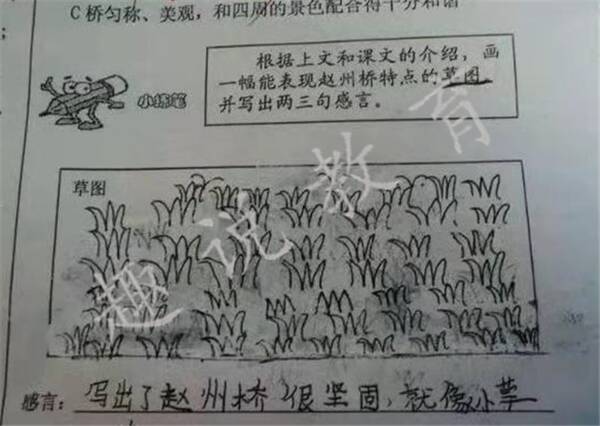 C桥匀称、美观，和四周的景色配合得十分和谐
根据上文和课文的介绍，画
一幅能表现赵州桥特点的草图
并写出两三句感言。
小练笔
草图
趣说教育
感言：写出了赵州桥很坚固，就像小草